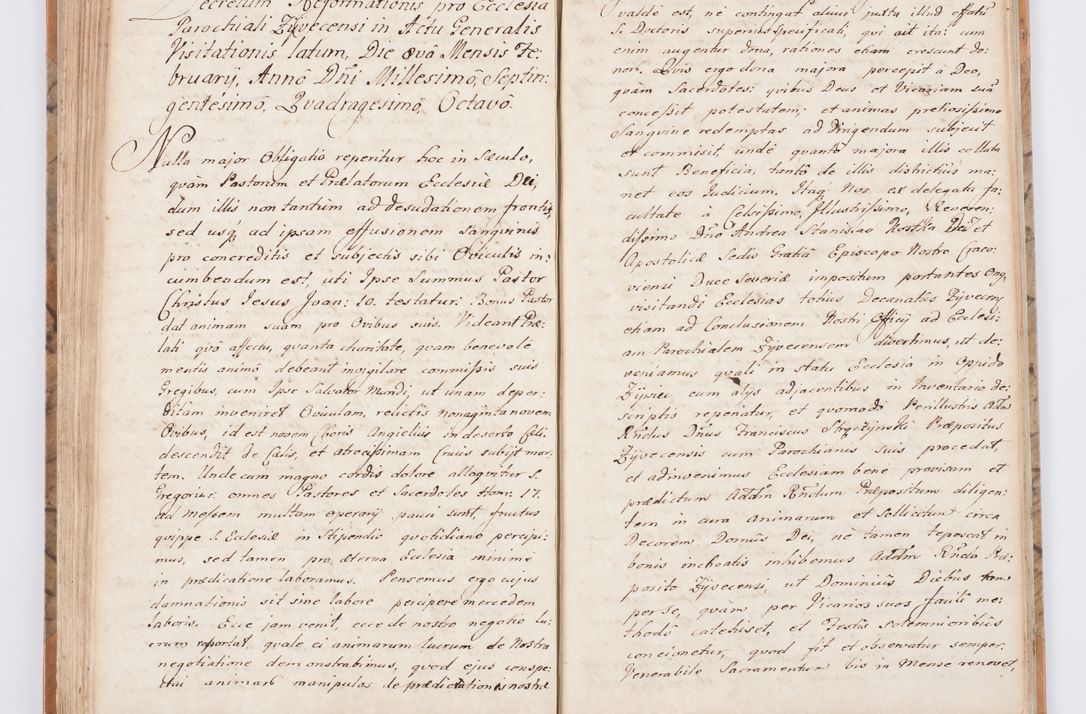 Decretum Reformationis pro Ecclesia
Parochiali Zÿvecensi in Actu Generalis
Visitationis latum, Die 8vâ Mensis Fe:
bruarÿ, Annô Dñi Millesimô, Septin:
gentésimô, Qvadragesimô, Octavô.
Nulla major Obligatio reperitur hoc in Sæculo,
qvàm Pastorum et Prælatorum Ecclesiæ Dei,
dum illis non tantùm ad desudationem frontis,
sed usq́ ad ipsam effusionem sangvinis
pro concreditis et subjectis sibi Oviculis in:
cumbendum est, uti Ipse Summus Pastor
Christus Jesus Joan: 10. testatur: Bonus Pastor
dat animam suam pro Ovibus suis. Videant Præ:
lati qvô affectu, quanta charitate, quam benevolê
mentis animô debeant invigilare commissis suis
Gregibus, cum Ipse Salvator Mundi, ut unam deper:
ditam inveniret Oviculam, relictis nonaginta novem
Ovibus, id est novem Choris Angelicis in deserto Cæli
descendit de Cælis, et atrocissimam Crucis subijt mor:
tem. Unde cum magno cordis dolore alloqvitur S.
Gregorius: omnes Pastores et Sacerdotes Hom: 17.
ad Messem multam operarÿ pauci sunt, fructus
qvippe S. Ecclesiæ in Stipendio quotidiano percipi:
mus, sed tamen pro æterna Ecclesia minimè
in prædicatione laboramus. Pensemus ergo cujus
damnationis sit sine labore percipere mercedem
laboris. Ecce jam venit, ecce de nostro negotio lu:
crum reportat, quale ei animarum lucrum de Nostra
negotiatione demonstrabimus, qvod ejus conspe:
ctui animarum manipulos de prædicationis nostræ
valdè est, nè contingat alicui juxta illud effatũ
S. Doctoris superius specificati, qvi ait ita: cum
enim augentur dona, rationes etiam crescunt do:
nor. Qvis ergo dona majora percepit à Deo,
qvàm Sacerdotes: qvibus Deus et Vicariam suã
concessit potestatem; et animas pretiosissimo
Sangvine redemptas ad dirigendum subjecit
et commisit, undè quantô majora illis collata
sunt Beneficia, tantô de illis districtius ma:
net eos Judicium, Itaq́ Nos ex delegata fa:
cultate à Celsissimo, Illustrissimo, Reveren:
dissimo Dño Andrea Stanislao Kostka Dei et
Apostolicæ Sedis Gratiâ Episcopo Nostro Craco:
viensi Duce Severiæ impositum portantes Onq́,
visitandi Ecclesias totius Decanatûs Zÿvecen,
etiam ad Conclusionem Nostri Officÿ ad Ecclesi:
am Parochialem Zÿvecensem divertimus, ut de:
veniamus quali in statu Ecclesia in Oppido
Zÿviec, cum alÿs adjacentibus in Inventario de:
scriptis reperiatur, et qvomodo Perillustris Adm
Rñdus Dñus Franciscus Præpositus
Zÿvecensis cum Parochianis suis procedat,
et adinvenimus Ecclesiam benè provisam et
prædictum Addm Rñdum Præpositum diligen:
tem in cura animarum et sollicitum circa
Decorem Domûs Dei, nè tamen teposcat in
bonis incboatis inhibemus Addm Rñdo Præ:
posito Zÿvecensi, ut Dominicis Diebus tam
per se, qvam per Vicarios suos facili me:
thodô catehiset, et Festis Solemnioribus
concionetur, qvod fit et observatur semper.
Venerabile Sacramentum bis in Mense renovet,